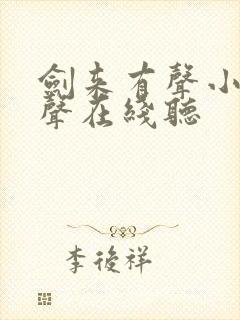 劍来有聲小
聲在綫聽
李後祥